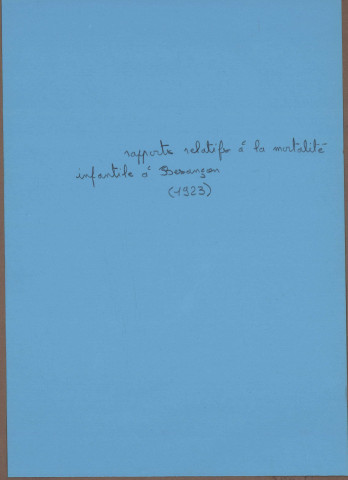 rapports relatifs à la mortalité
infantile à Besançon
(1923)